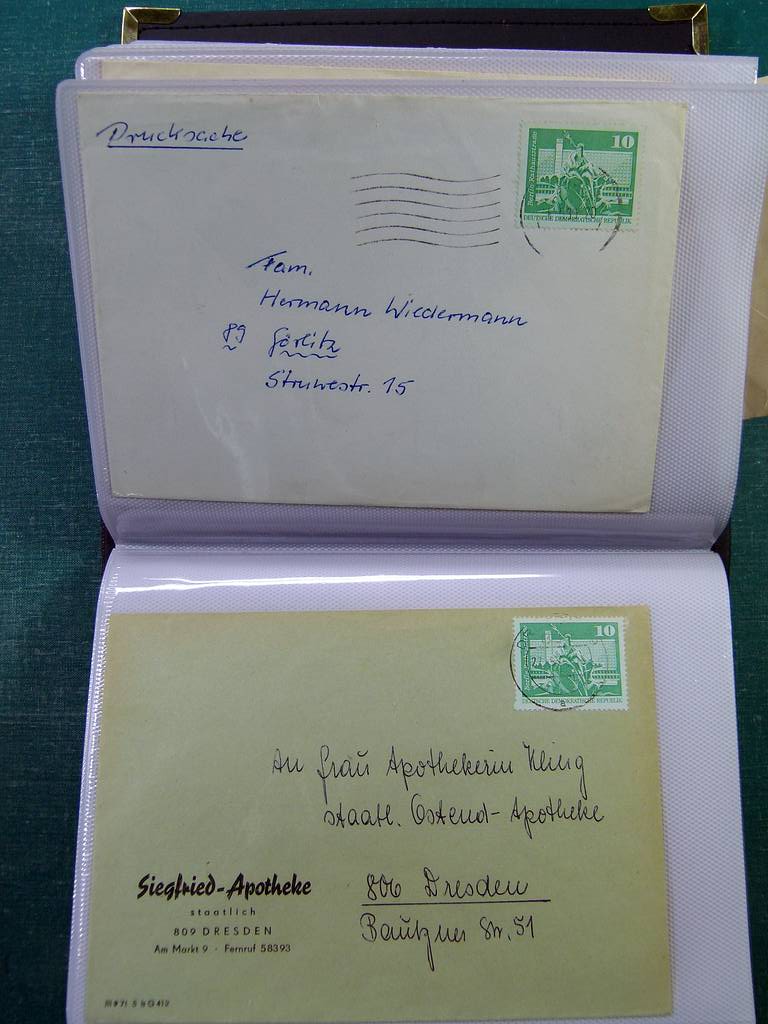 Drucksache
10
Berlin, Rathausstraße
DEUTSCHE DEMOKRATISCHE REPUBLIK
Fam.
Hermann Wiedermann
89 Görlitz
Struvestr. 15
10
DEUTSCHE DEMOKRATISCHE REPUBLIK
An Frau Apothekerin Kling
staatl. Ostend-Apotheke
806 Dresden
Bautzner Str. 51
Siegfried-Apotheke
staatlich
809 DRESDEN
Am Markt 9 · Fernruf 58393